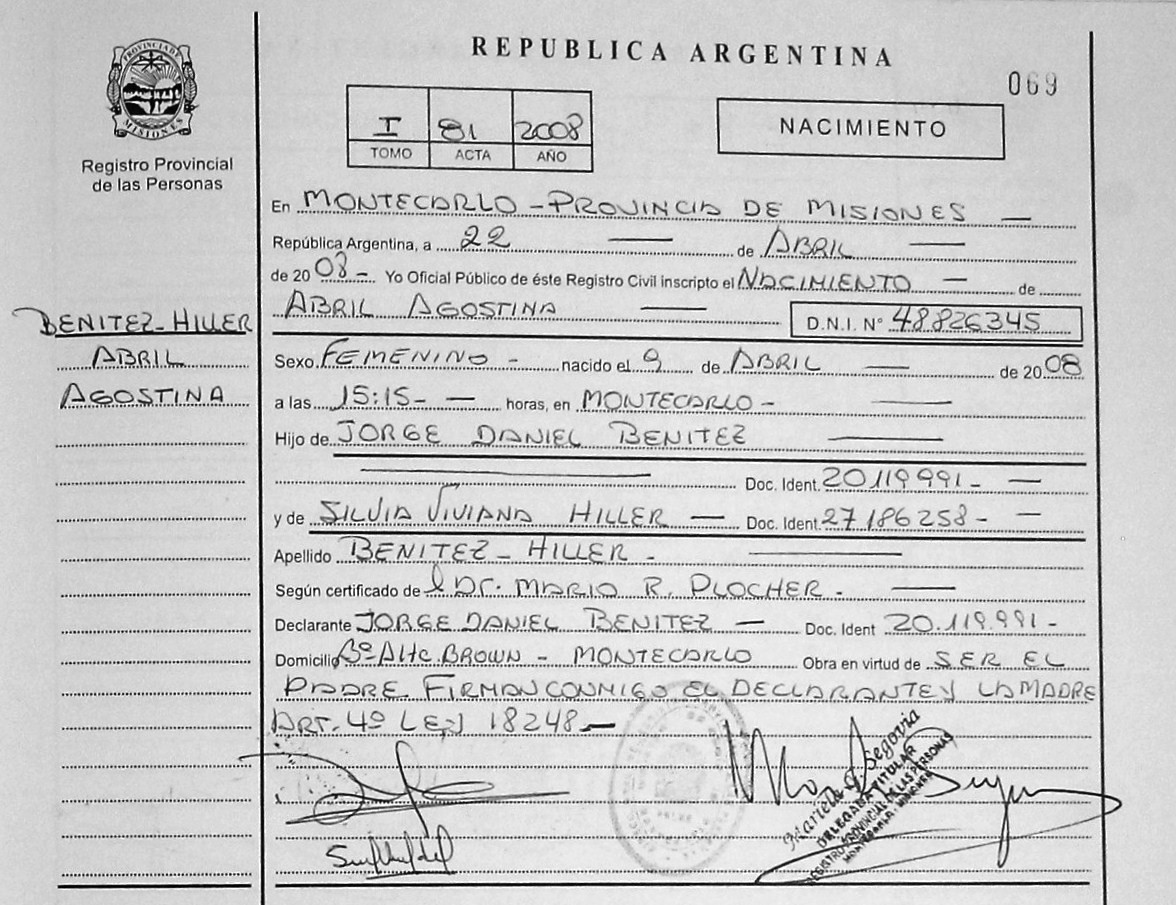 REPUBLICA ARGENTINA
069
PROVINCIA DE MISIONES
Registro Provincial
de las Personas
I 81 2008
TOMO ACTA AÑO
NACIMIENTO
En MONTECARLO - PROVINCIA DE MISIONES —
República Argentina, a 22 — de ABRIL —
de 20 08 - Yo Oficial Público de éste Registro Civil inscripto el NACIMIENTO — de
ABRIL AGOSTINA — D.N.I. N° 48826345
BENITEZ-HILLER
ABRIL
AGOSTINA
Sexo FEMENINO - nacido el 9 de ABRIL — de 20 08
a las 15:15 - — horas, en MONTECARLO - —
Hijo de JORGE DANIEL BENITEZ —
— Doc. Ident. 20.119.991 - —
y de SILVIA VIVIANA HILLER — Doc. Ident. 27186258 - —
Apellido BENITEZ - HILLER - —
Según certificado de l Dr. MARIO R. PLOCHER - —
Declarante JORGE DANIEL BENITEZ — Doc. Ident 20.119.991 -
Domicilio Bº Alte. BROWN - MONTECARLO Obra en virtud de SER EL
PADRE. FIRMAN CONMIGO EL DECLARANTE Y LA MADRE
ART. 4º LEY 18248 —
Mariela G. Segovia
DELEGADA TITULAR
REGISTRO PROVINCIAL DE LAS PERSONAS